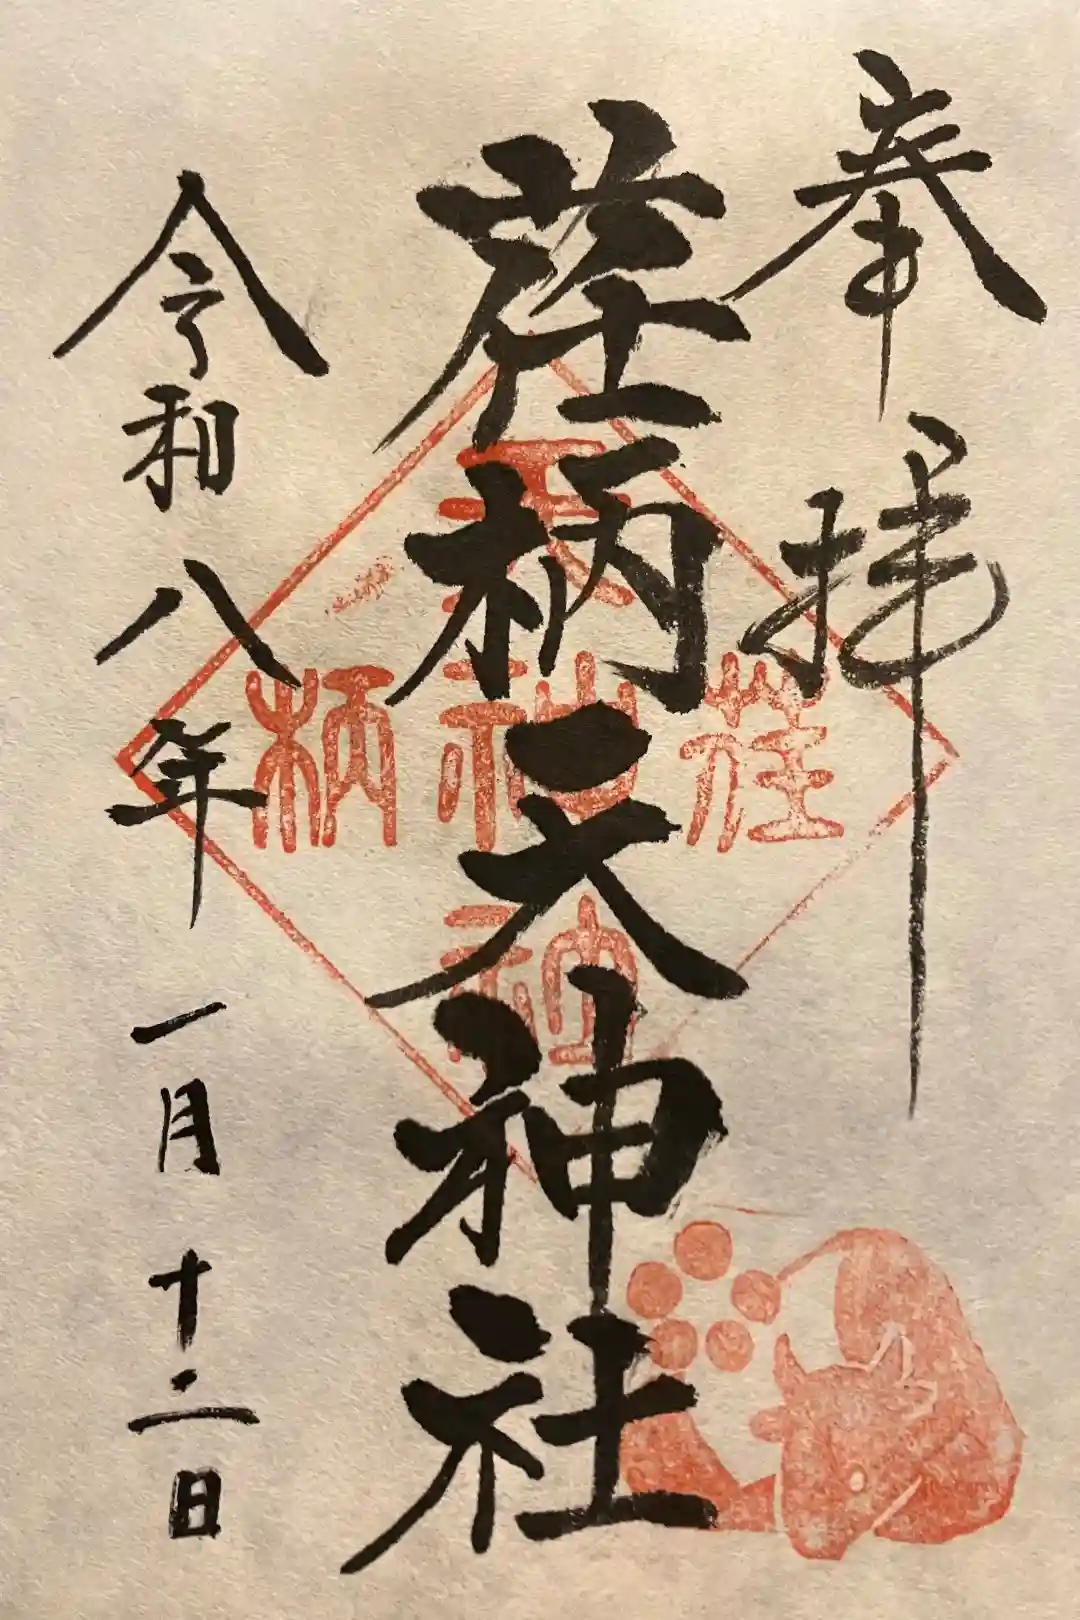 奉拝
荏柄天神社
令和八年一月十二日
天
荏
柄
神
社